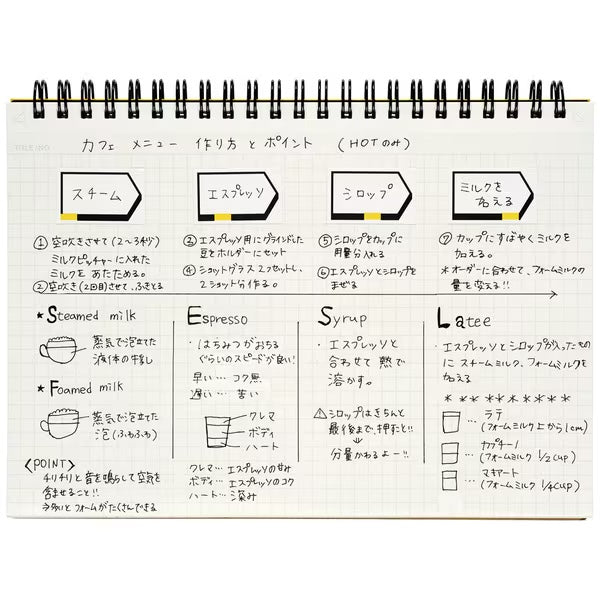 TITLE AND.
カフェ メニュー 作り方 と ポイント (HOTのみ)
スチーム
エスプレッソ
シロップ
ミルクを
加える
① 空吹きさせて(2〜3秒)
ミルクピッチャーに入れた
ミルクを あたためる。
② 空吹き(2回目)させて、ふきとる
③ エスプレッソ用にグラインドした
豆をホルダーにセット
④ ショットグラス 2ッセットし、
2ショット分作る。
⑤ シロップをカップに
用量分入れる
⑥ エスプレッソとシロップを
まぜる
⑦ カップにすばやくミルクを
加える。
*オーダーに合わせて、フォームミルクの
量を変える!!
★ Steamed milk
蒸気で泡立てた
液体の牛乳
★ Foamed milk
蒸気で泡立てた
泡(ふわふわ)
〈POINT〉
チリチリと音を鳴らして空気を
含ませること!!
⇒多いとフォームがたくさんできる
Espresso
・はちみつがおちる
ぐらいのスピードが良い!
早い… コク無
遅い… 苦い
クレマ
ボディー
ハート
クレマ… エスプレッソの甘み
ボディ… エスプレッソのコク
ハート… 深み
Syrup
・エスプレッソと
合わせて 熱で
溶かす。
⚠シロップはきちんと
最後まで、押す!!
⇓
分量かわるよー!!
Latee
・エスプレッソとシロップが入ったもの
に スチームミルク、フォームミルクを
加える
* * * * * * * * *
… ラテ
(フォームミルク上から1cm)
… カプチーノ
(フォームミルク 1/2cup)
… マキアート
(フォームミルク 1/4cup)